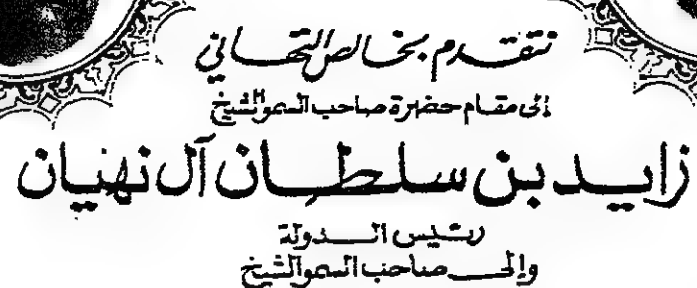 نتقدم بخالص التهاني
إلى مقام حضرة صاحب السمو الشيخ
زايد بن سلطان آل نهيان
رئيس الدولة
وإلى صاحب السمو الشيخ